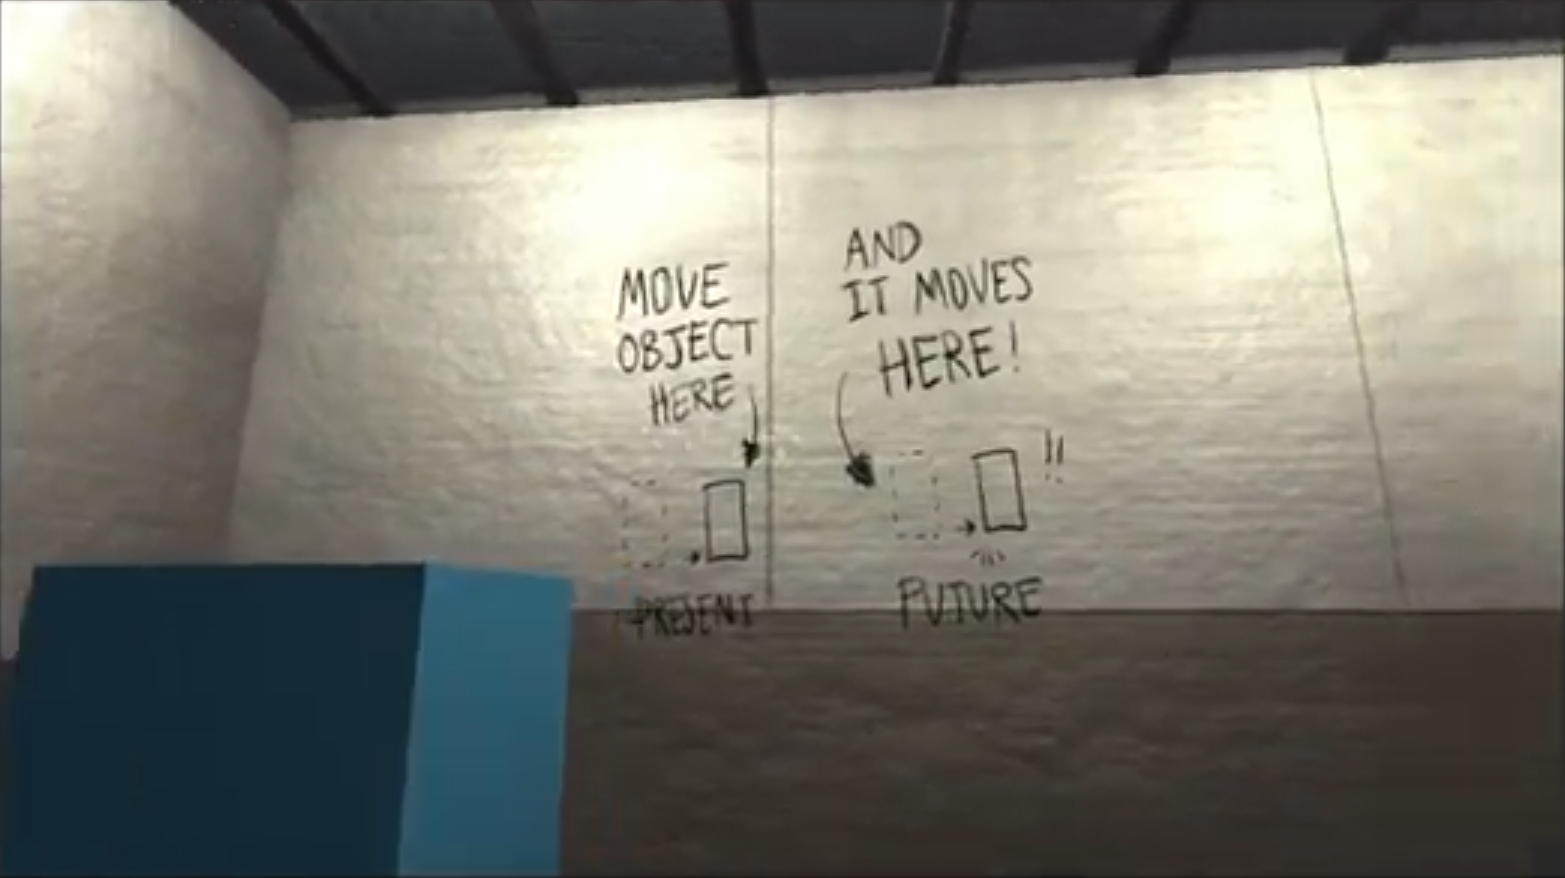 MOVE
OBJECT
HERE
PRESENT
AND
IT MOVES
HERE!
!!
FUTURE